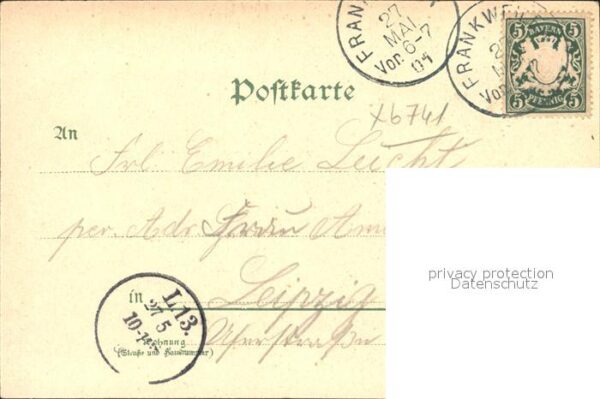 FRANKW
27
MAI
Vor. 6-7
04
FRANKW
Vor
5 BAYERN 5
5 PFENNIG 5
Postkarte
X6741
An
Frl. Emilie Leicht
per. Adr. Frau
privacy protection
Datenschutz
in Leipzig
L.13.
27 5
10-11
Wohnung
(Straße und Hausnummer)